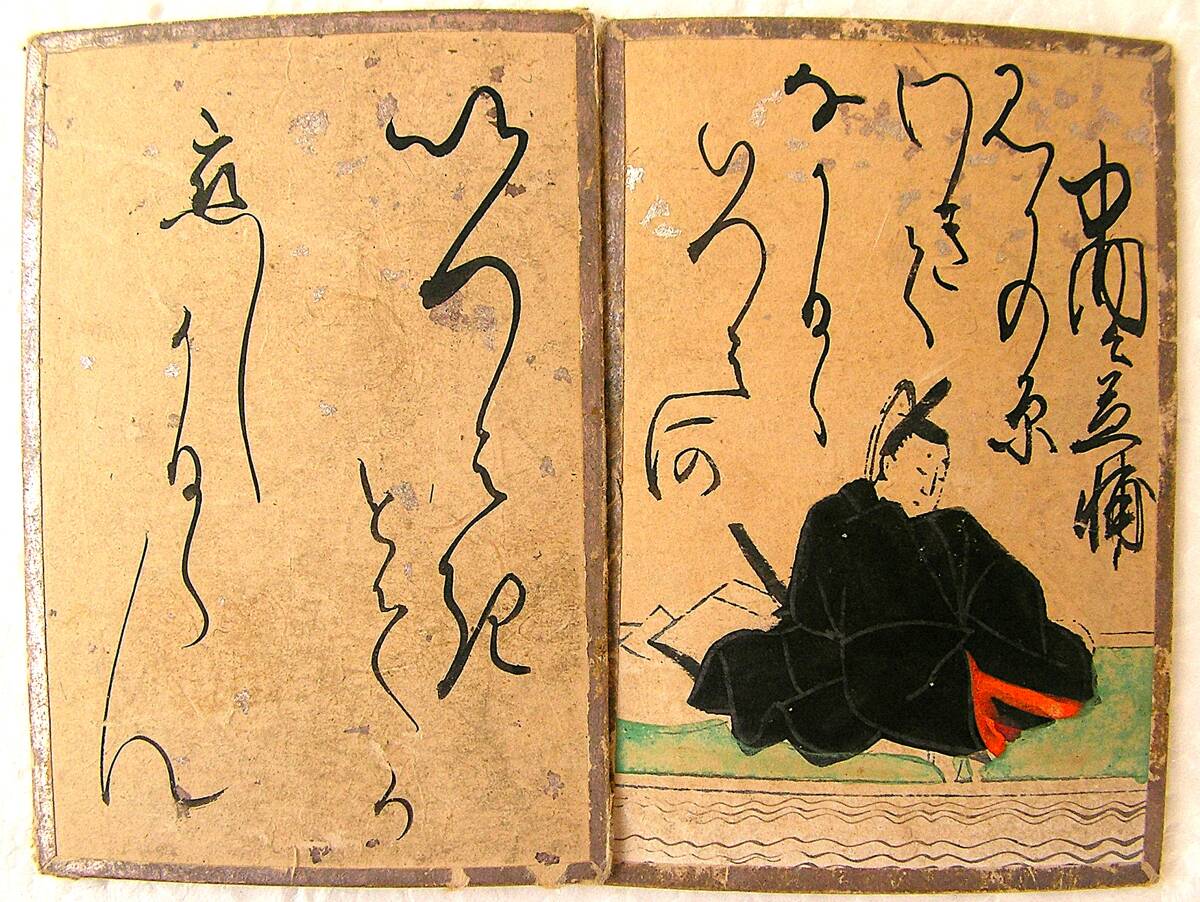 中納言兼輔
みかの原
わきて
なかるゝ
いつみ河
いつみき
とてか
恋し
かるらん